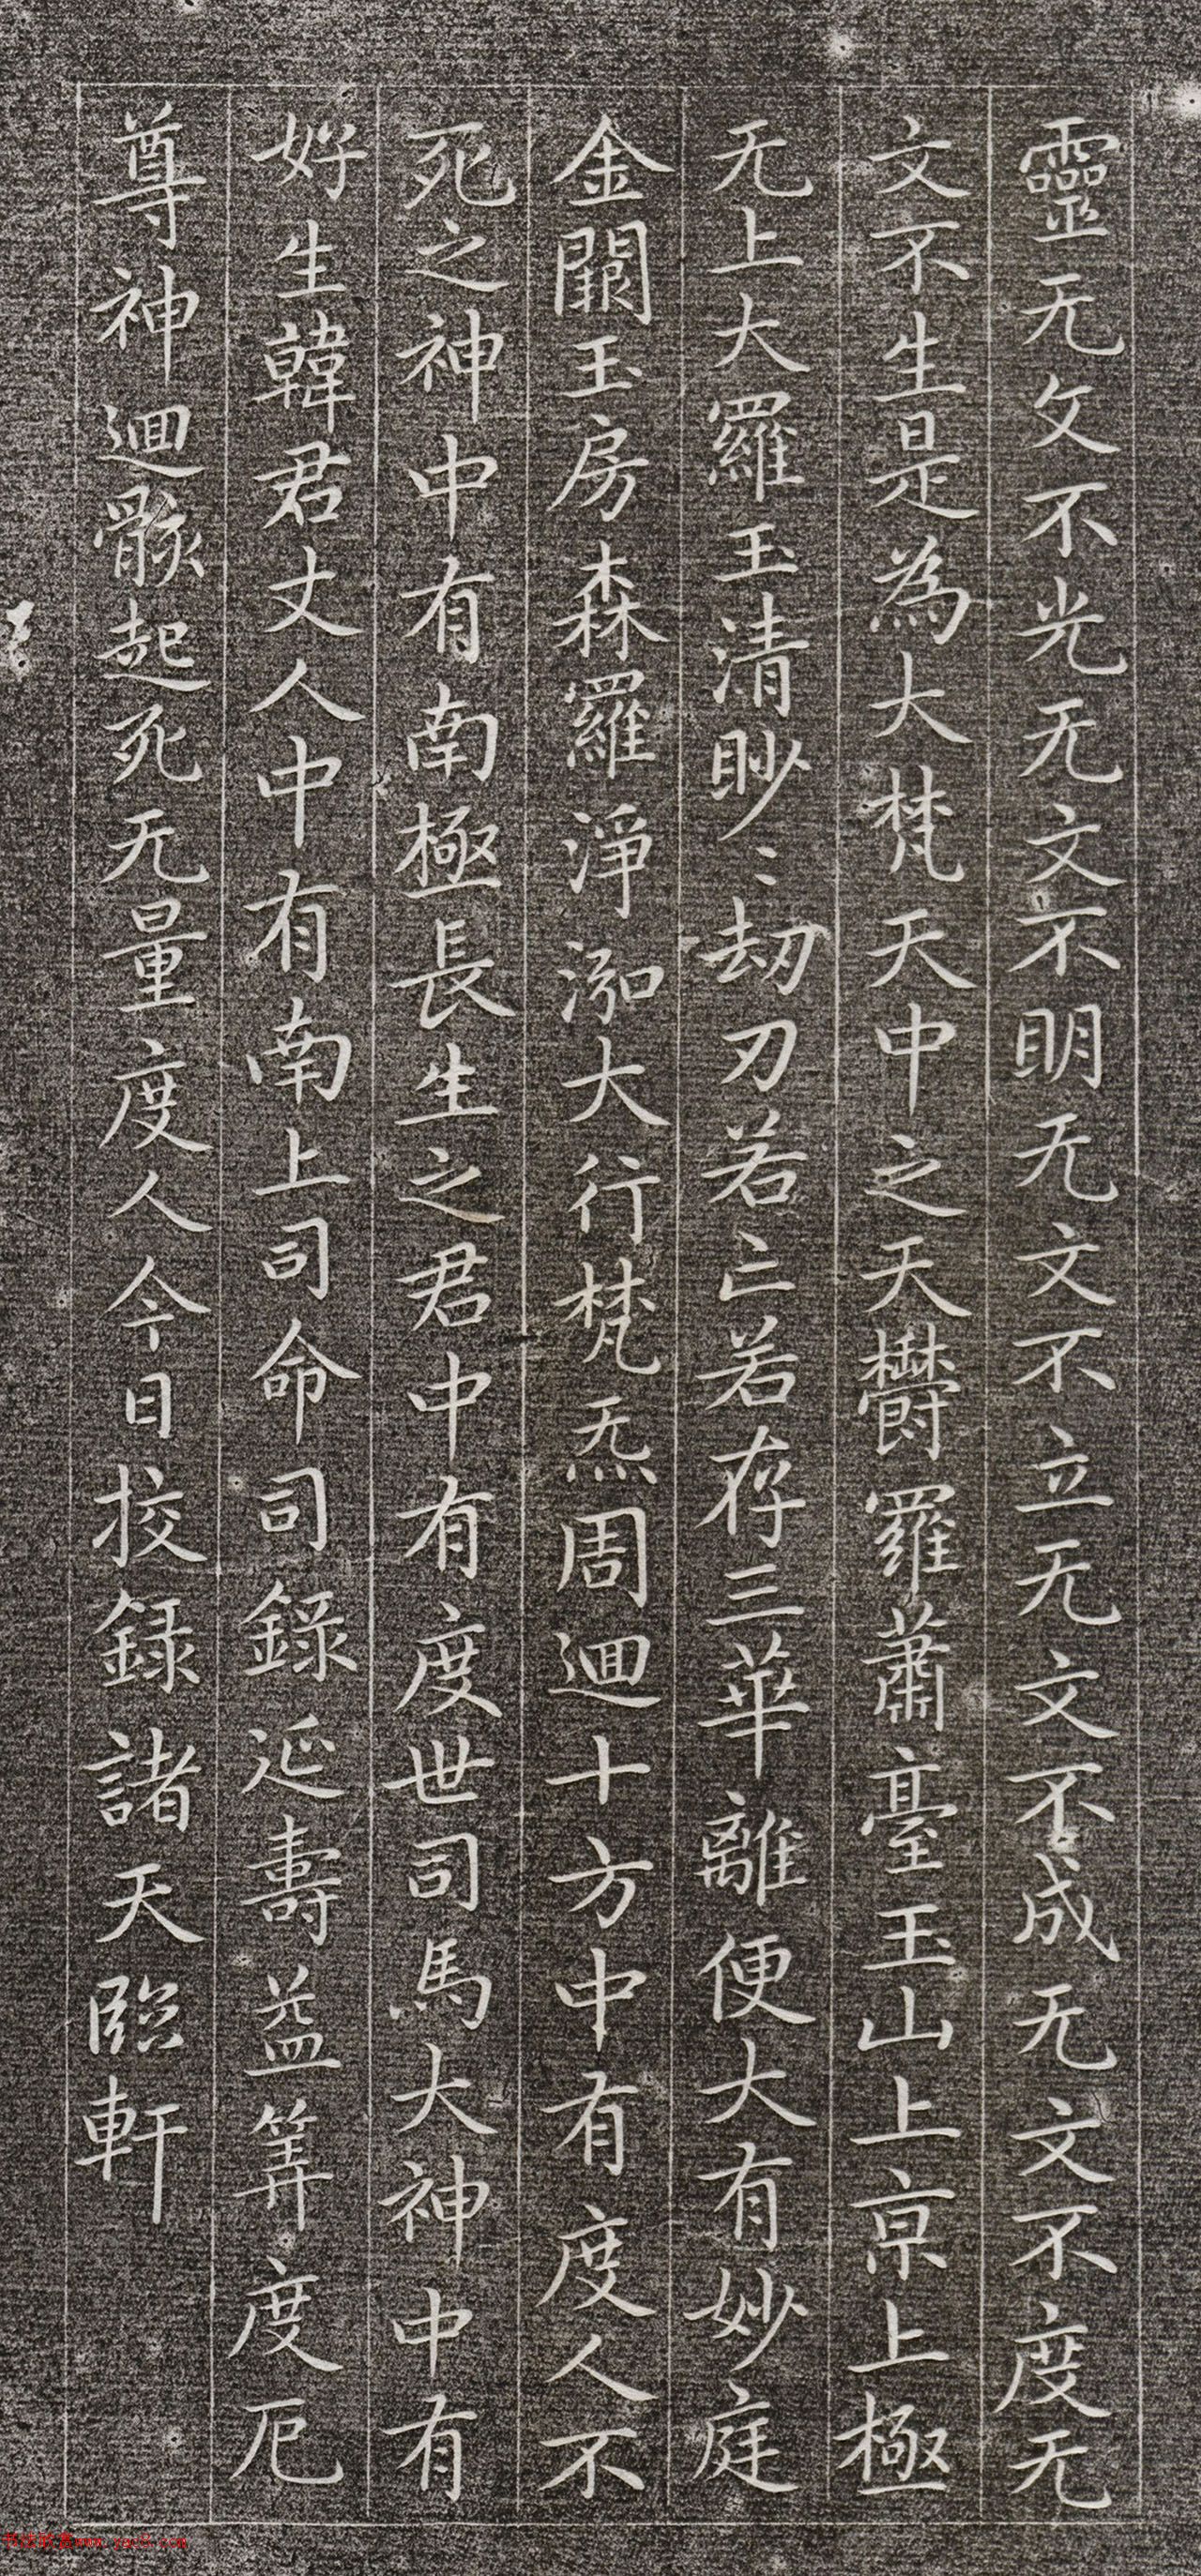 靈无文不光无文不明无文不立无文不成无文不度无
文不生是為大梵天中之天欝羅蕭臺玉山上京上極
无上大羅玉清眇〻劫刃若亡若存三華離便大有妙庭
金闕玉房森羅淨泓大行梵炁周迴十方中有度人不
死之神中有南極長生之君中有度世司馬大神中有
好生韓君丈人中有南上司命司録延壽益筭度厄
尊神迴骸起死无量度人今日挍録諸天臨軒